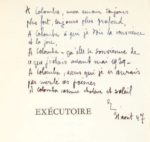 A Colomba, mon amour toujours
plus fort, toujours plus profond,
A Colomba à qui je dois la conscience
de la joie,
A Colomba - qu'elle se souvienne de
ce que j'étais avant mai
A Colomba, sans qui je n'aurais
pas écrit ces poèmes
A Colomba comme et soleil
EXÉCUTOIRE
août 47